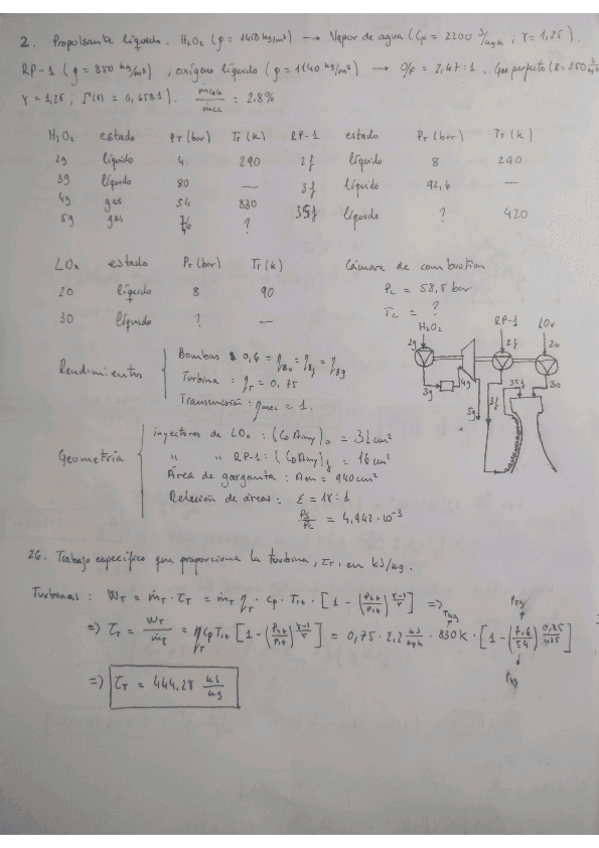 2. Propulsante líquido. H₂O₂ (ρ = 1450 kg/m³) → Vapor de agua (Cp = 2200 J/kgK ; γ = 1,25).
RP-1 (ρ = 850 kg/m³) ; oxígeno líquido (ρ = 1140 kg/m³) → O/F = 2,47:1. Gas perfecto (R = 350
γ = 1,25 ; Γ(γ) = 0,6581). = 2.8%
H₂O₂ estado PT (bar) TT (K) RP-1 estado PT (bar) TT (K)
2g líquido 4 290 2f líquido 8 290
3g líquido 80 — 3f líquido 92,6 —
4g gas 54 830 35f líquido ? 420
5g gas ?
LOx estado PT (bar) TT (K) Cámara de combustion
2o líquido 8 90 Pc = 58,5 bar
3o líquido ? — Tc = ?
H₂O₂ RP-1 LOx
2g 2f 2o
3g 4g 5g 3f 35f 3o
Rendimientos
Bombas 0,6 = ηBo = ηBf = ηBg
Turbina : ηT = 0,75
Transmisión : ηmec = 1.
Geometría
inyectores de LOx : (CD Ainy)o = 32 cm²
" " RP-1 = (CD Ainy)f = 16 cm²
Área de garganta : Ath = 940 cm²
Relación de áreas : ε = 18:1
Ps/Pc = 4,942·10⁻³
26. Trabajo específico que proporciona la turbina, τT, en kJ/kg.
Turbinas : WT = ṁT · τT = ṁT ηT · cp · T1t · [1 − (P2t/P1t)^(γ-1/γ)] =>
=> τT = WT/ṁT = ηT cp T1t [1 − (P2t/P1t)^(γ-1/γ)] = 0,75 · 2,2 kJ/kgK · 830K · [1 − (7,6/54)^(0,25/1,25)]
T4g PT5g P4g
=> τT = 444,28 kJ/kg